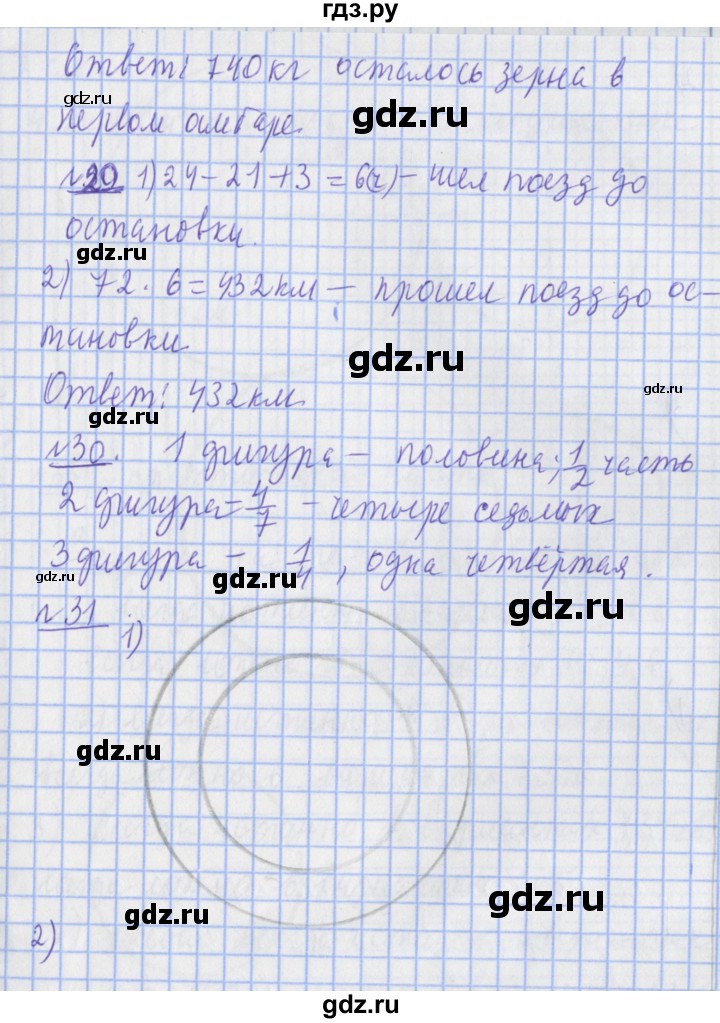 гдз.ру
Ответ: 740 кг осталось зерна в
первом амбаре.
gdz.ru
gdz.ru
№20 1) 24-21+3=6(ч)- шел поезд до
gdz.ru
остановки.
gdz.ru
2) 72·6=432км - прошел поезд до ос-
тановки
gdz.ru
Ответ: 432км.
gdz.ru
gdz.ru
№30. 1 фигура - половина; 1/2 часть
2 фигура = 4/7 - четыре седьмых
3 фигура - 1/4, одна четвёртая.
gdz.ru
gdz.ru
№31 1)
gdz.ru
gdz.ru
gdz.ru
gdz.ru
gdz.ru
2)
gdz.ru